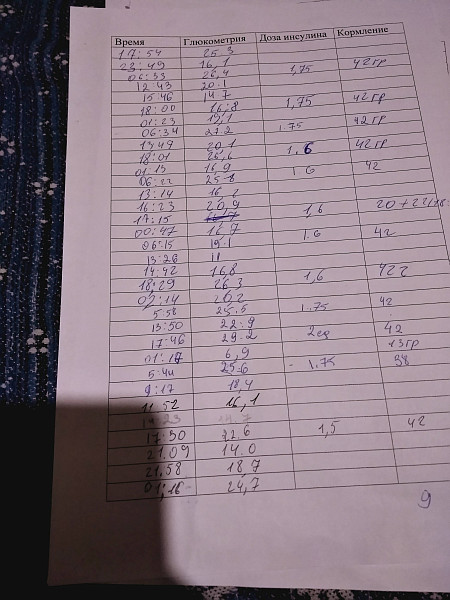 Время Глюкометрия Доза инсулина Кормление
17:54 25.3
23:49 16,1 1,75 42гр
06:33 26,4
12:43 20.1
15:46 14.7 1,75 42гр
18:00 16,8
01:23 19,1 1.75 42гр
06:34 27.2
13:49 20.1 1.6 42гр
18:01 26,6
01:13 16.9 1.6 42
06:22
13:14
16:23 20,9 1,6
17:15
00:47 1.6 42
06:15 19.1
13:26 11
14:42 16,8 1,6 42
18:29 26,3
02:14 20,2 1.75 42
5:58 25.5
13:50 22.9 2ед 42
17:46 29.2 13гр
6,9 38
5:44 25.6 1.75
9:17 18,4
11:52 16,1
17:30 22.6 1,5 42
21.09 14.0
21.58 18,7
01:16 24,7
9